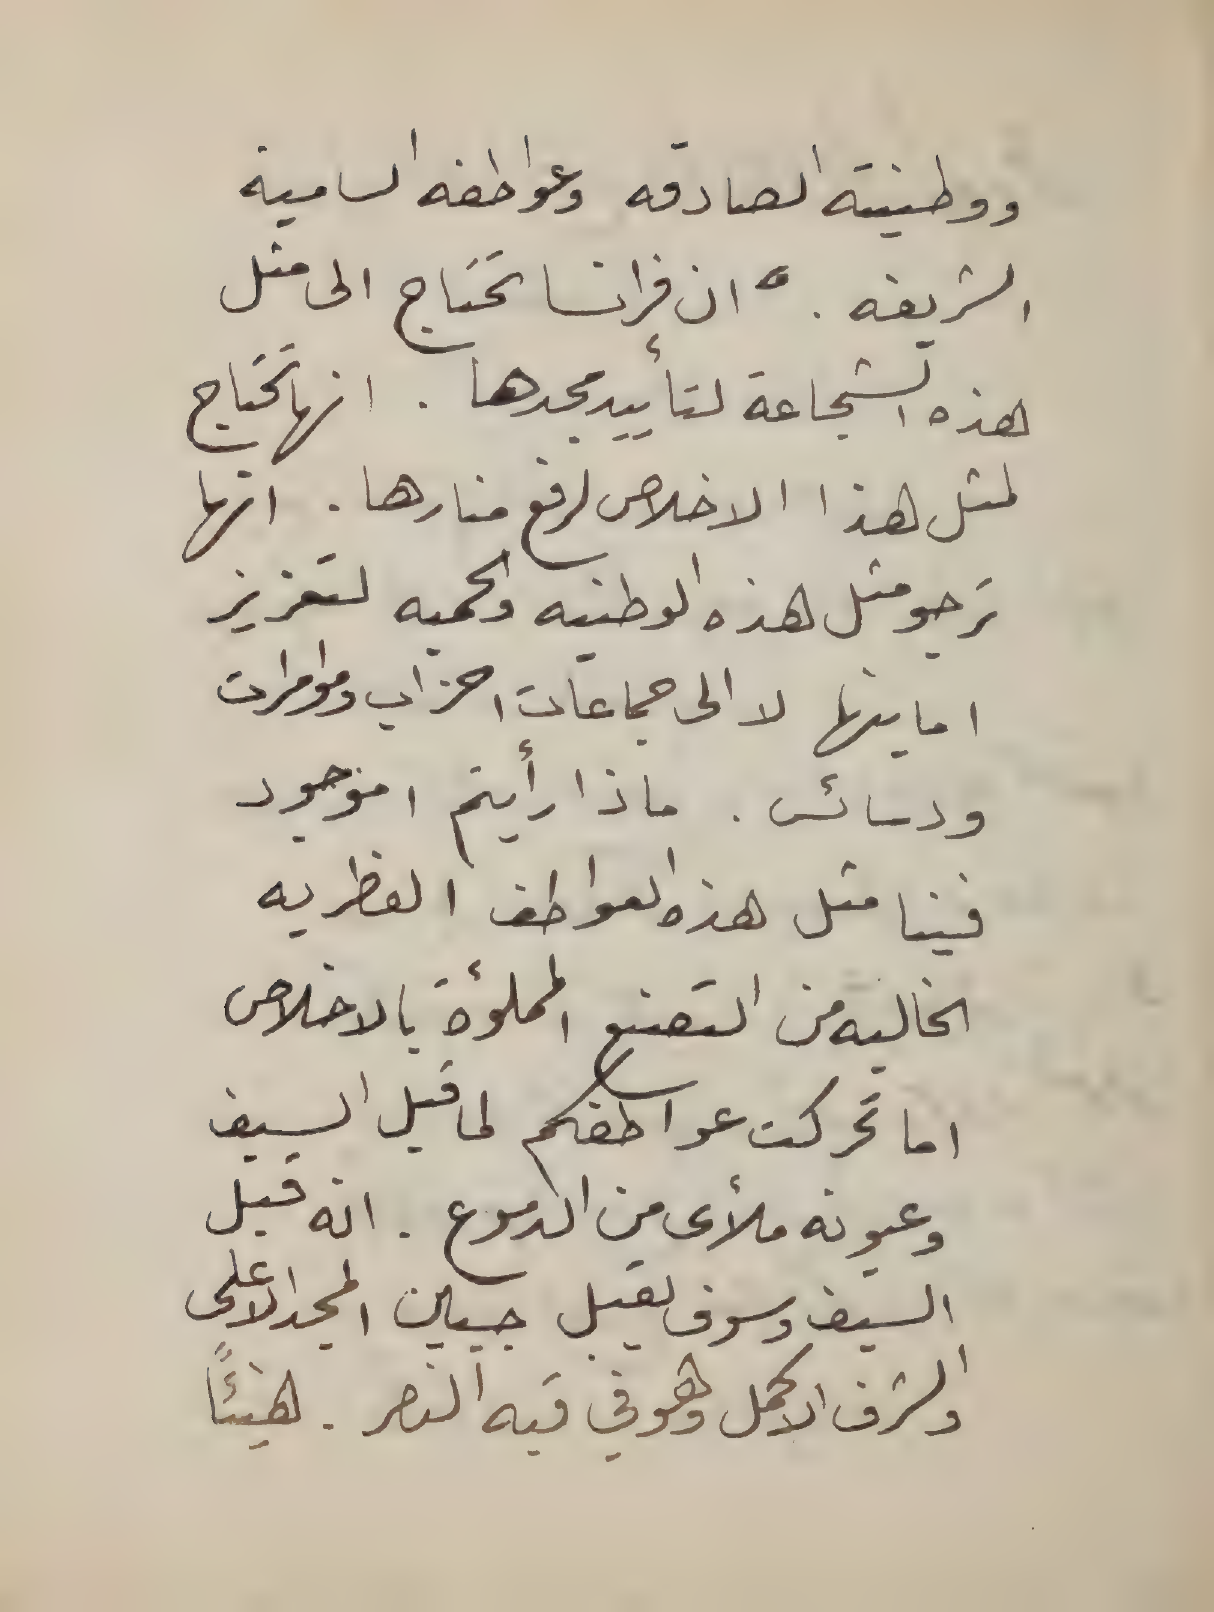 ووطنيته الصادقه وعواطفه السامية
الشريفه . ان فرانسا تحتاج الى مثل
هذه الشجاعة لتأييد مجدها . انها تحتاج
لمثل هذا الاخلاص لرفع منارها . انها
ترجو مثل هذه الوطنيه والحميه لتعزيز
امانيها لا الى جماعات احزاب ومؤامرات
ودسائس . ماذا رأيتم اموجود
فينا مثل هذه العواطف الفطريه
الخاليه من التصنع المملؤة بالاخلاص
اما تحركت عواطفكم لما قبل السيف
وعيونه ملأى من الدموع . انه قبل
السيف وسوف يقبل جبين المجد الاعلى
والشرف الاكمل وهو في قبه النصر . هنيئًا